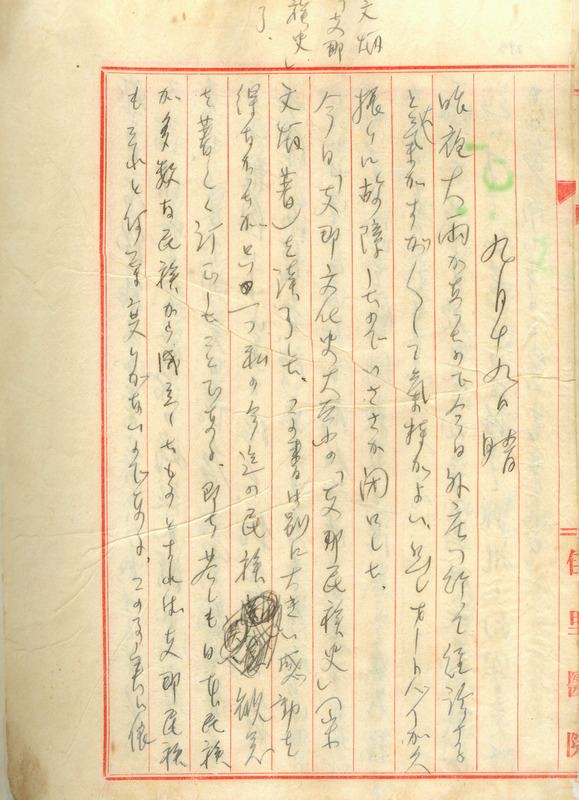 九月十九日 晴
昨夜大雨があつたので今日外店へ行って往診する
と気がすがくして気持がよい、然しオートバイが久
振りに故障したのでいささか閉口した。
今日「支那文化史大系」の「支那民族史」(宋
文炳著)を読了した。この書は別に大きい感動を
得なかったが只一つ私の今迄の民族観念
を著しく訂正したことである。即ち若しも日本民族
が多数な民族から成立したものとすれば支那民族
も それと何等変りがないのである。この事実は
文炳
「支那
民族史」
了
佐里醫院